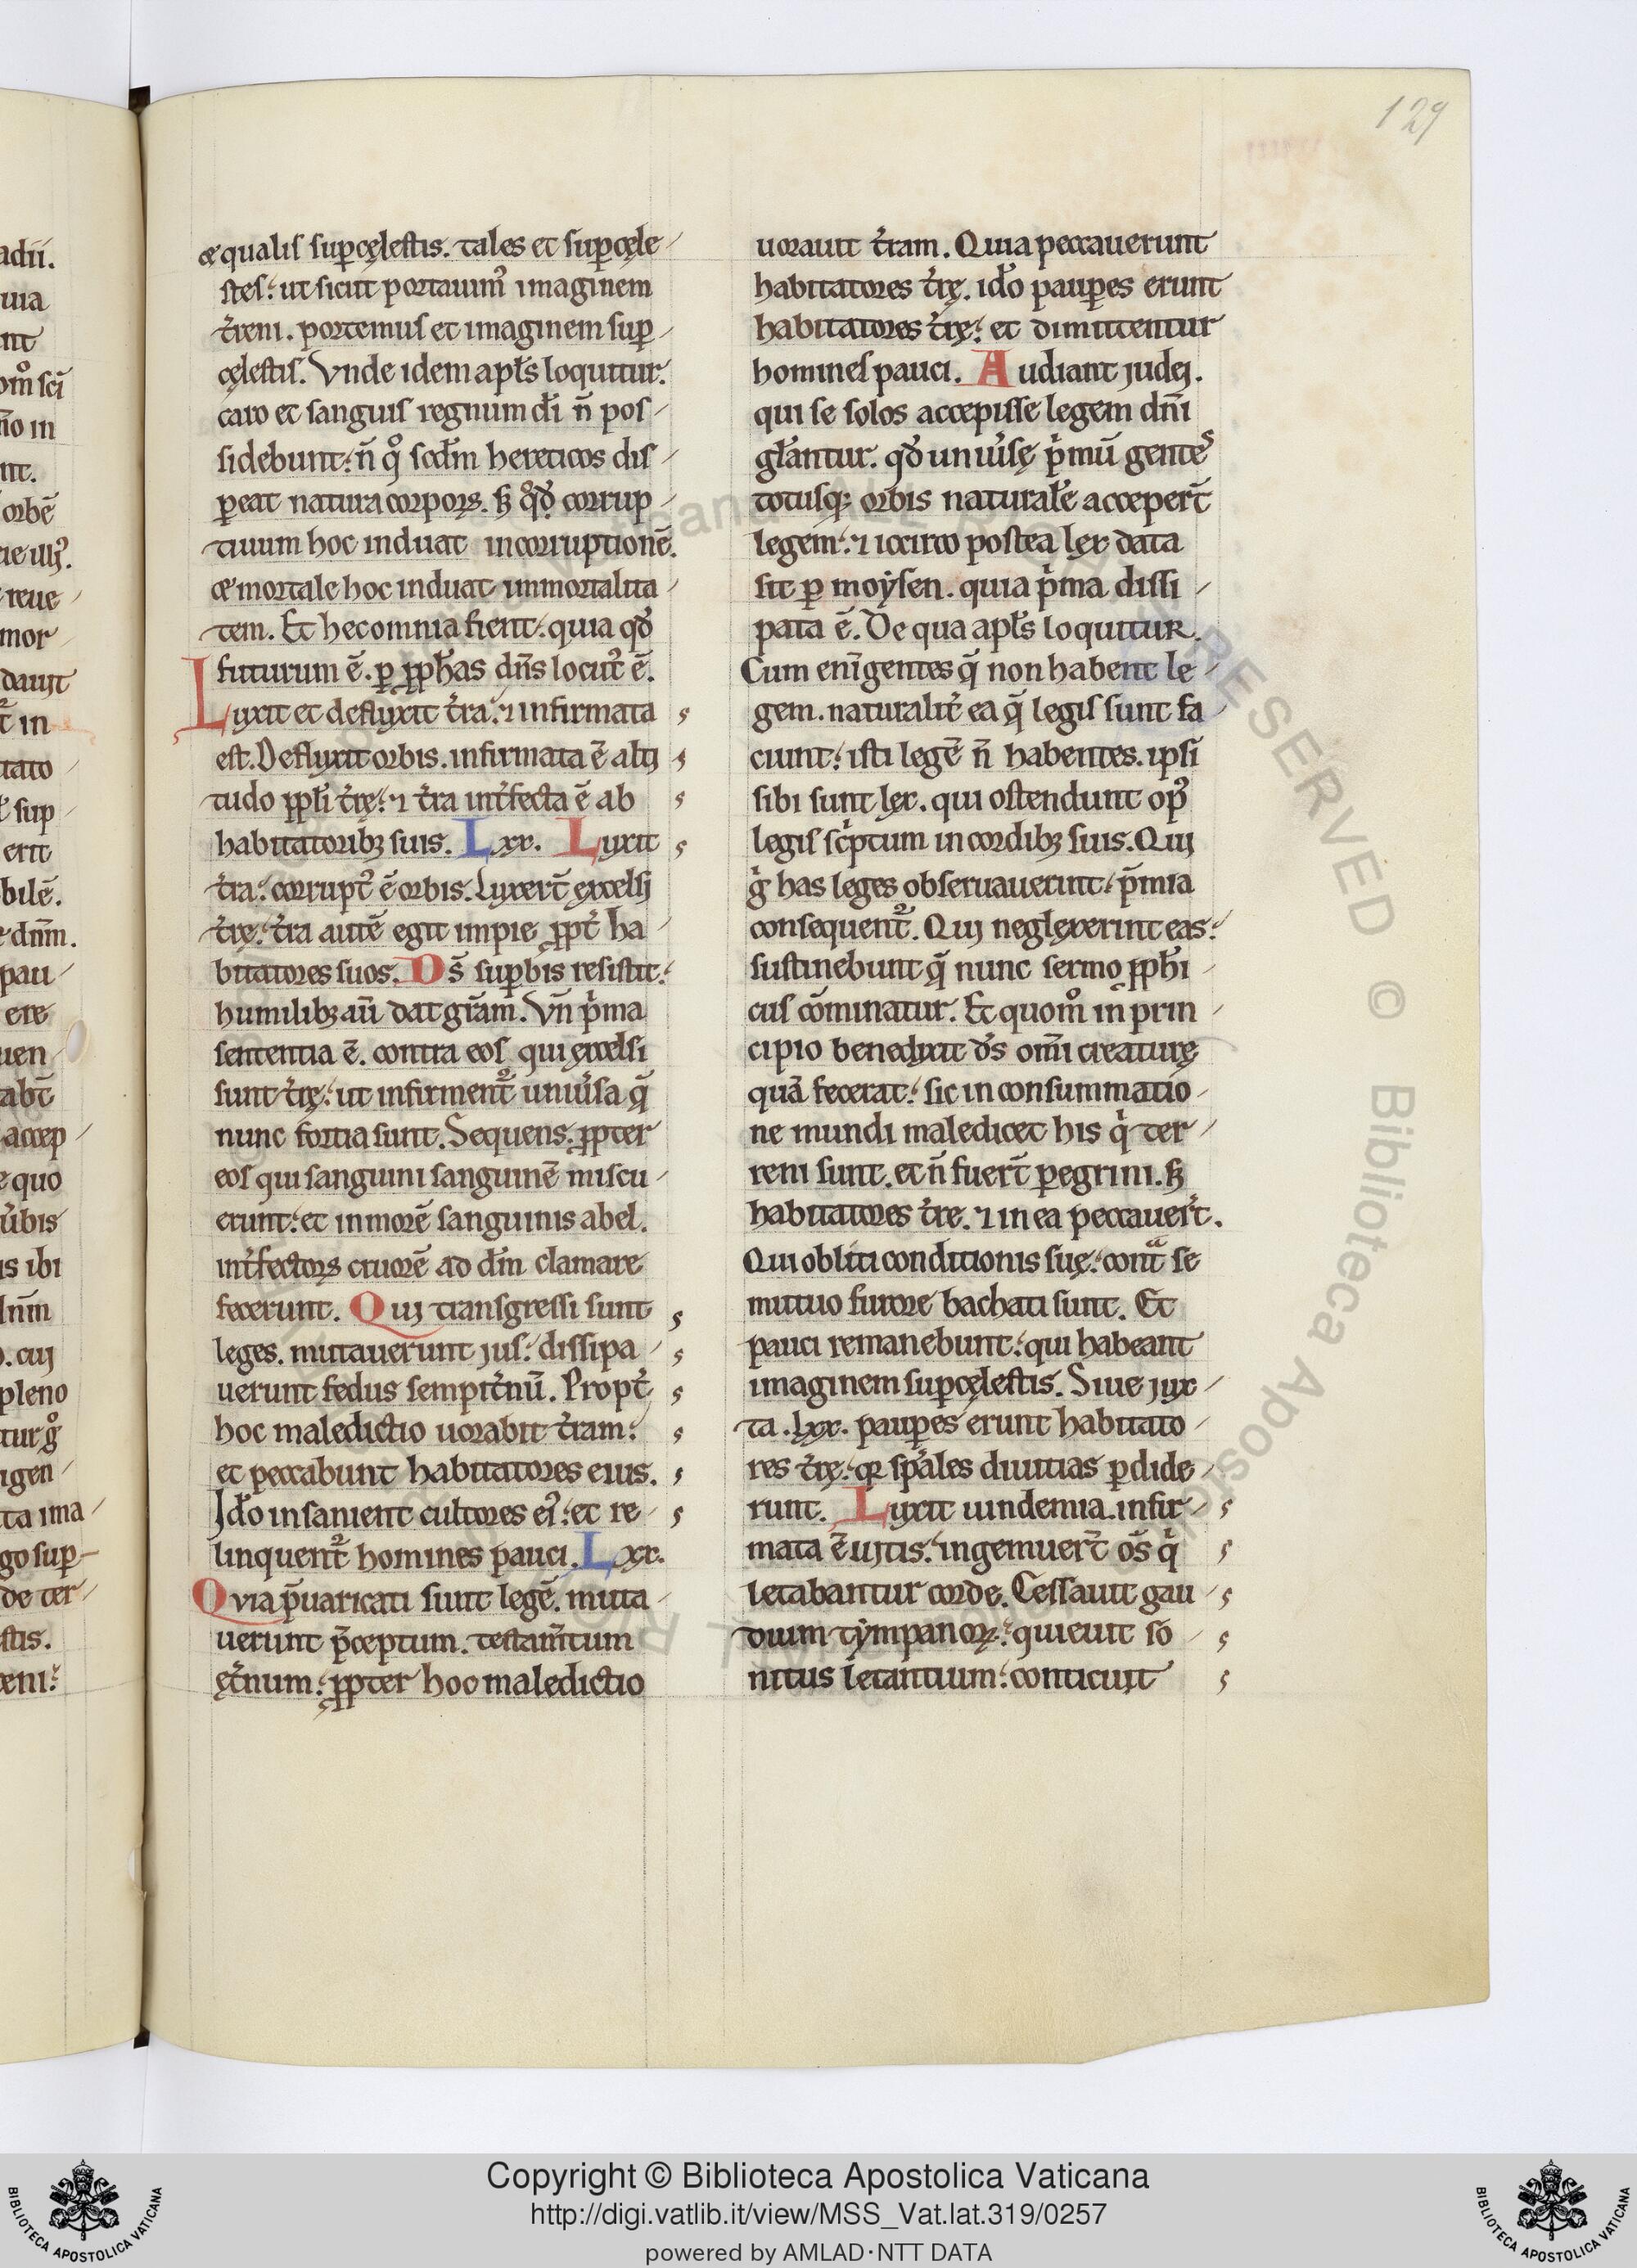 129
adii.
uia
nt
om̊ sci̅
n̅o in
nt.
orbē
ie ulłꝰ.
reue
mor
dauit
in
tato
sup
erit
bilē.
dnm̅.
pau
ere
uen
abt̅
accep
e quo
u̓bis
is ibi
lnm̅
. cuj
pleno
tur g̊
igen
ta ima
go sup
de ter
stis.
reni:
& qualis sup̲cęlestis. tales et sup̲cęle
stes: ut sicut portauimꝰ imaginem
t̓reni. portemus et imaginem sup̲
cęlestis. Vnde idem apl̅s loquitur.
caro et sanguis regnum di̅ n̅ pos
sidebunt: n̅ q̊ scd̅m hereticos dis
ꝑeat natura corporꝭ. sꝫ qd̊ corrup
tiuum hoc induat incorruptionē.
& mortale hoc induat immortalita
tem. Et hec omnia fient: quia qd̓
futurum ē. ꝑ ꝓph̅as dn̅s locutꝰ ē.
Luxit et defluxit t̓ra: ⁊ infirmata
est. Defluxit orbis. infirmata ē alti
tudo ppl̅i t̓rę: ⁊ t̓ra int̓fecta ē ab
habitatoribꝫ suis. Lxx. Luxit
t̓ra: corruptꝰ ē orbis. Luxert̅ excelsi
t̓rę: t̓ra autē egit impie ꝓpt̓ ha
bitatores suos. Ds̅ sup̲bis resistit:
humilibꝫ au̅ dat gr̅am. Vn̅ p̓ma
sententia ē. contra eos qui excelsi
sunt t̓rę: ut infirment᷑ uniu̓sa q̅
nunc fortia sunt. Sequens. ꝓpter
eos qui sanguini sanguinē miscu
erunt: et in morē sanguinis abel.
int̓fectorꝭ cruorē ad dm̅ clamare
fecerunt. Qui transgressi sunt
leges. mutauerunt jus: dissipa
uerunt fedus sempit̓nu̅. Propt̓
hoc maledictio uorabit t̓ram:
et peccabunt habitatores eius.
Jdo̅ insanient cultores eiꝰ: et re
linquent᷑ homines pauci. Lxx.
Qvia p̅uaricati sunt legē. muta
uerunt p̅ceptum. testam̅tum
ęt̓num: ꝓpter hoc maledictio
uorauit t̓ram. Quia peccauerunt
habitatores t̓rę. ido̅ paup̲es erunt
habitatores t̓rę: et dimittentur
homines pauci. Audiant judej.
qui se solos accepisse legem dn̅i
gl̅antur. qd̓ uniu̓sę p̓mu̅ gentes
totusqꝫ orbis naturale̅ accepert̅
legem: ⁊ iccirco postea lex data
sit ꝑ moẏsen. quia p̓ma dissi
pata ē. De qua apl̅s loquitur.
Cum eni̅ gentes q̅ non habent le
gem. naturalit̓ ea q̅ legis sunt fa
ciunt: isti legē n̅ habentes. ipsi
sibi sunt lex. qui ostendunt opꝰ
legis sc̓ptum in cordibꝫ suis. Qui
g̓ has leges obseruauerint: p̅mia
consequent᷑. Qui neglexerint eas:
sustinebunt q̅ nunc sermo ꝓph̅i
cus co̅minatur. Et quom̊ in prin
cipio benedixit ds̅ om̅i creaturę
qua̅ fecerat: sic in consummatio
ne mundi maledicet his q̓ ter
reni sunt. et n̅ fuert̅ ꝑegrini. sꝫ
habitatores t̓re. ⁊ in ea peccauer̓t.
Qui obliti conditionis suę: contᷓ se
mutuo furore bachati sunt. Et
pauci remanebunt: qui habeant
imaginem sup̲cęlestis. Siue jux
ta .lxx. paup̲es erunt habitato
res t̓rę: qꝛ sp̅ales diuitias ꝑdide
runt. Luxit uindemia. infir
mata ē uitis: ingemuert̅ os̅ q̓
letabantur corde. Cessauit gau
dium tẏmpanoꝝ: quieuit so
nitus letantium: conticuit
© Biblioteca Apostolica Vaticana
ALL RIGHTS RESERVED
Copyright © Biblioteca Apostolica Vaticana
http://digi.vatlib.it/view/MSS_Vat.lat.319/0257
powered by AMLAD·NTT DATA
BIBLIOTECA APOSTOLICA VATICANA
BIBLIOTECA APOSTOLICA VATICANA